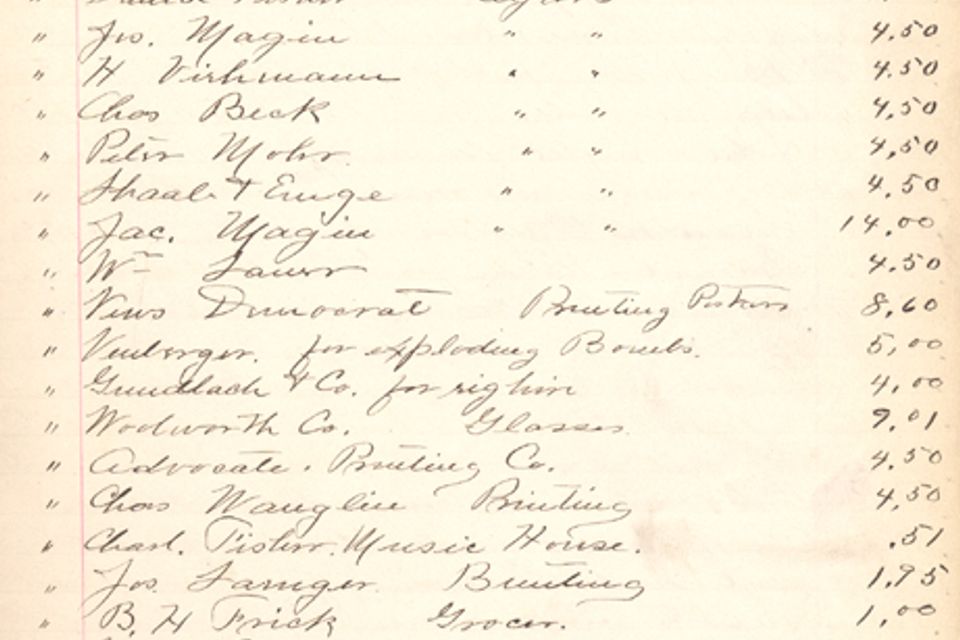 " Jos. Magin " " 4.50
" H Virhmann " " 4.50
" Chas Beck " " 4.50
" Peter Mohr. " " 4,50
" & Emge " " 4.50
" Jac. Magin " " 14.00
" Wm Sauer 4.50
" News Democrat Printing Posters 8,60
" Vinberger. for exploding Bombs. 5,00
" Gundlach & Co. for 4,00
" Woolworth Co. Glasses 9.01
" Advocate. Printing Co. 4.50
" Chas Wanglin Printing 4.50
" Chasl. Fisher. Music House. .51
" Jos. Bunting 1.95
" B. H Frick Grocer. 1.00